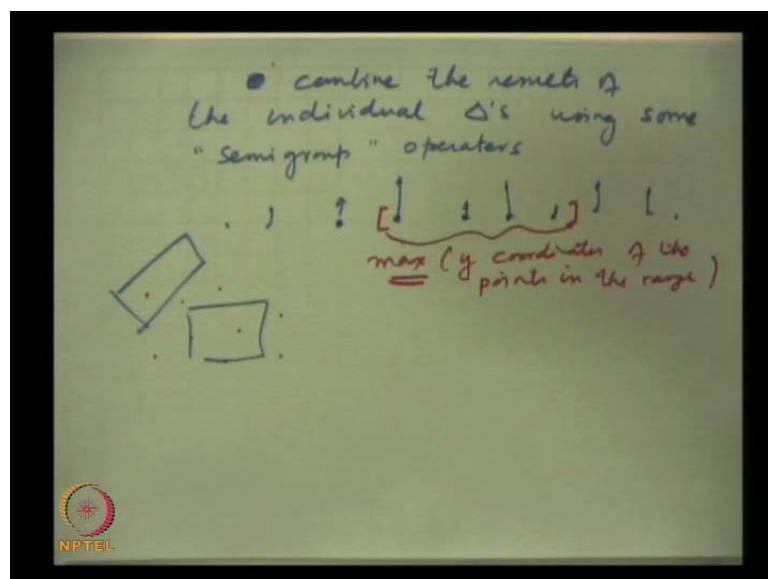 • combine the results of
the individual Δ's using some
"semigroup" operators
max ( y coordinates of the
points in the range )
NPTEL